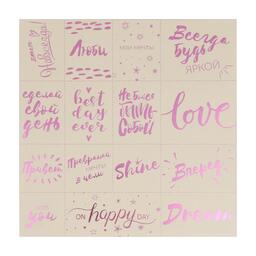 Люби
МОИ МЕЧТЫ
Всегда
будь
ЯРКОЙ
сделай
свой
день
best
day
ever
Не бойся
быть
Собой!
love
Привет
Превращай
мечты
в цели
Shine
Вперед
you
ON happy DAY
Dream